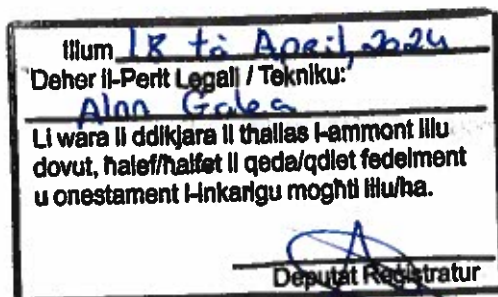 Illum 18 ta April, 2024
Deher il-Perit Legali / Tekniku:
Alan Galea
Li wara li ddikjara li tħallas l-ammont lilu
dovut, ħalef/ħalfet li qeda/qdiet fedelment
u onestament l-inkarigu mogħti lilu/ha.
Deputat Reġistratur